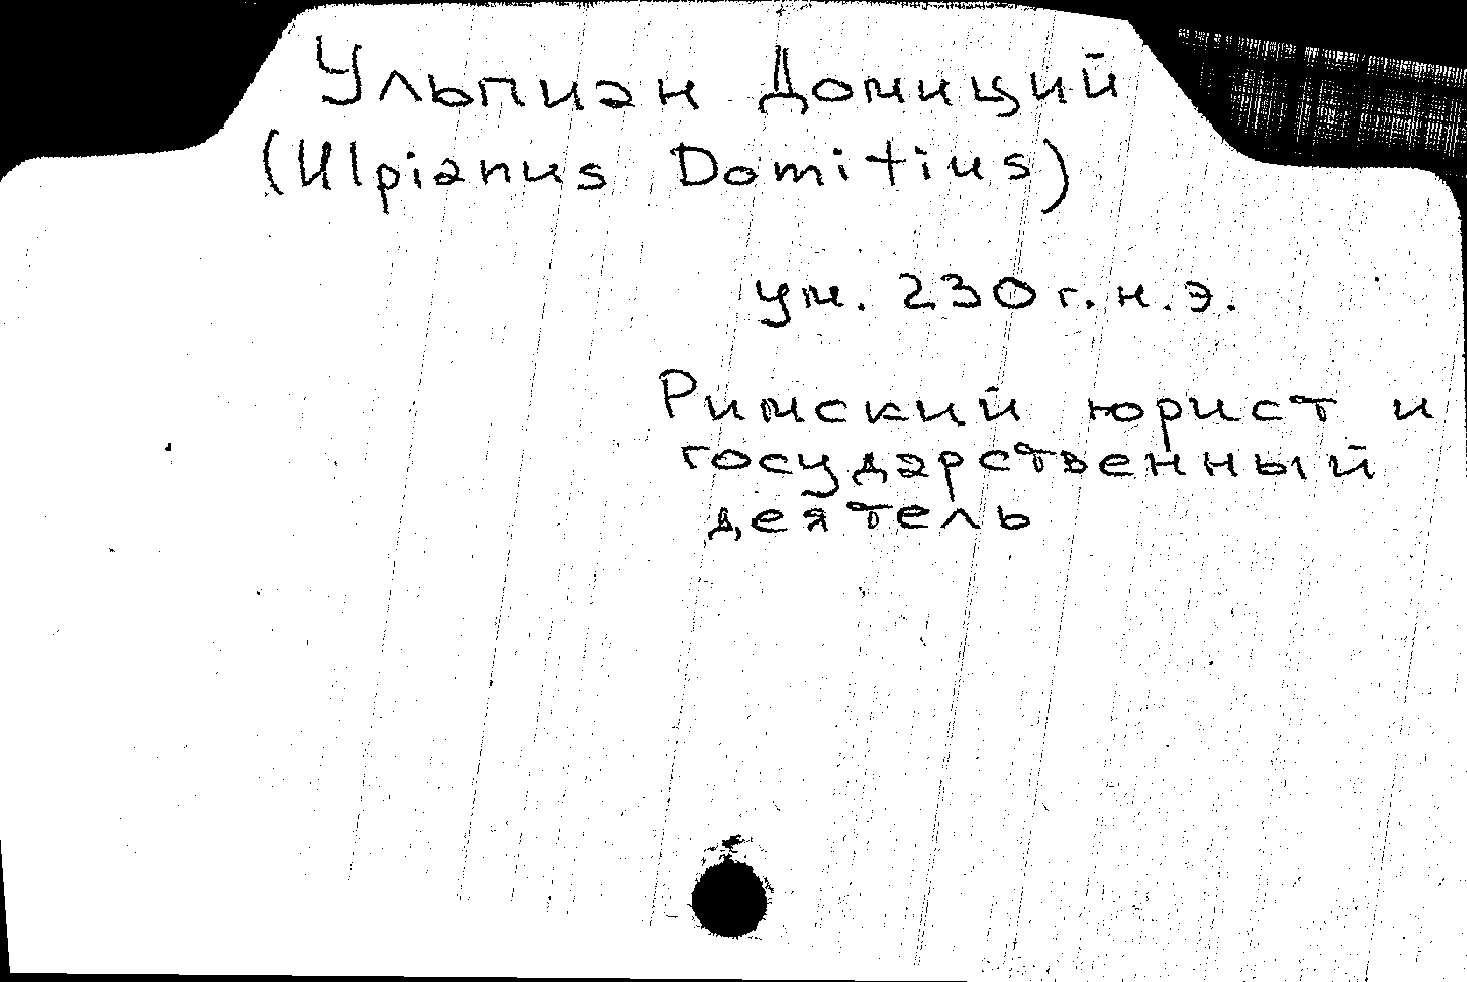 Ульпиан Домиций
(Ulpianus Domitius)
ум. 230 г. н. э.
Римский юрист и
государственный
деятель